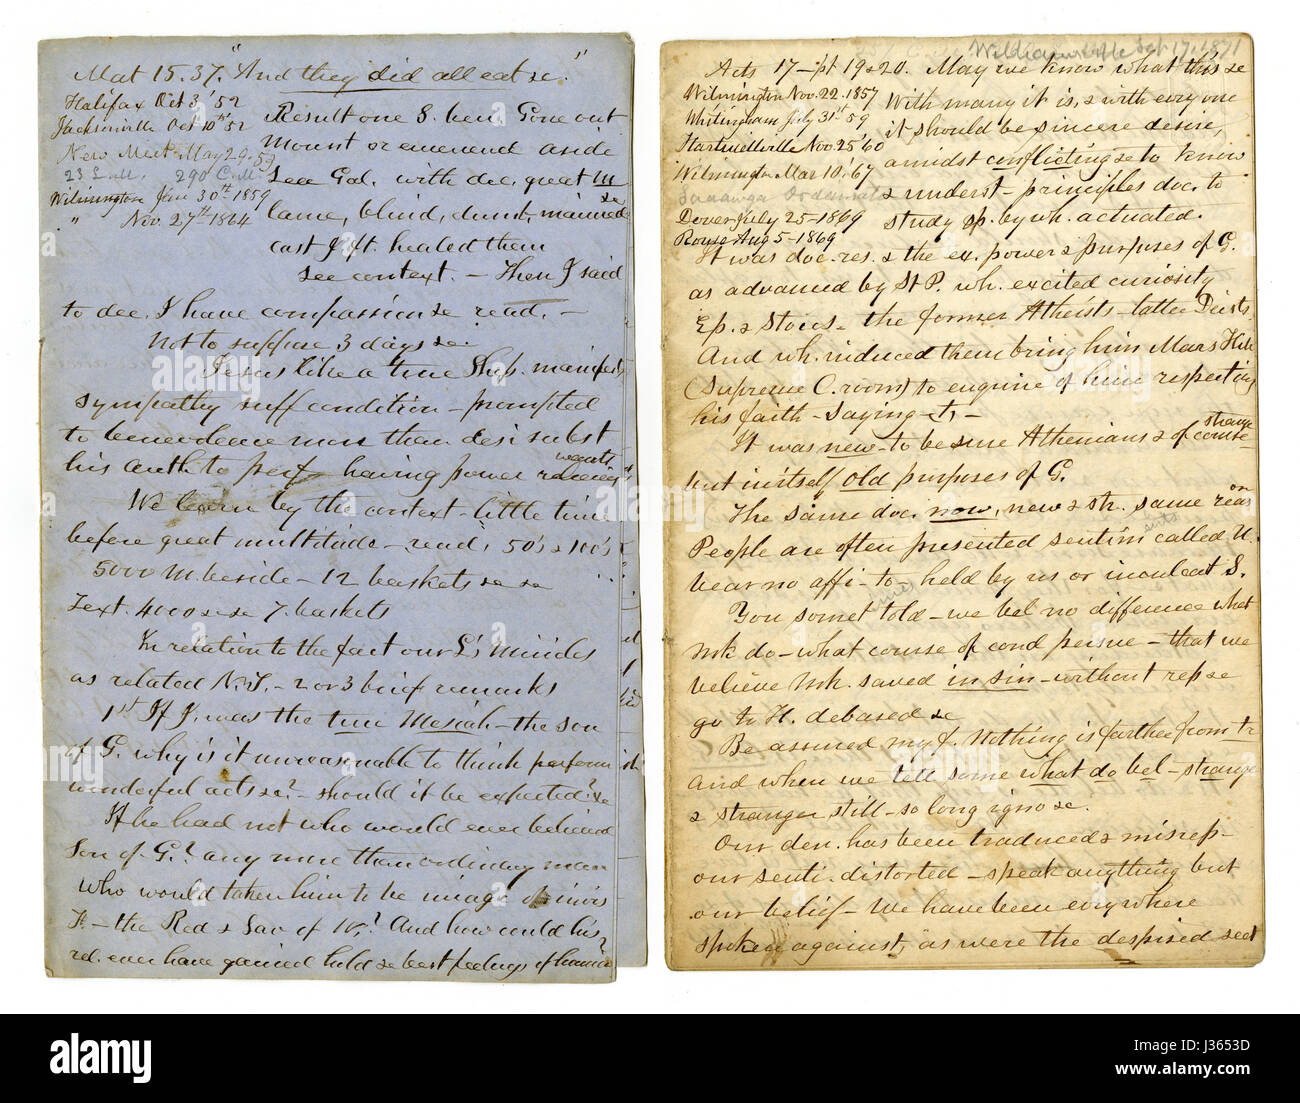 Mat 15.37. "And they did all eat &c."
Halifax Oct 3' 52
Jacksonville Oct 10th 52
New Meet May 29.
23 290
Wilmington Jan 30th 1859
" Nov. 27th 1864
Result one S. ben. Gone out
Mount or eminence aside
Sea Gal. with dec. great M
lame, blind, dumb, maimed &c
cast J ft. healed them
See context. — Then J said
to dec. I have compassion &c read. —
Not to suppose 3 days &c.
Jesus like a true Shep. manifests
sympathy suff condition — prompted
to benevolence more than desi subst
his auth to perf having power wants
We learn by the context — little time
before great multitude — read, 50's & 100's
5000 M. beside — 12 baskets &c &c
Text. 4000 &c &c 7. baskets
In relation to the fact our L's Miricles
as related N.T. — 2 or 3 brief remarks
1st If J. was the true Mesiah — the son
of G. why is it unreasonable to think perform
wonderful acts &c? — should it be expected? &c
If he had not who would ever believed
Son of G.? any more than ordinary man
Who would taken him to be image of invis
F. — the Red & Sav of W? And how could his
rel. ever have gained hold &c best feelings of human?
Williamsville Sept 17, 1871
Acts 17 — pt 19 & 20. May we know what this &c
Wilmington Nov. 22. 1857
Whitingham July 31st 59
Hartwellville Nov 25' 60
Wilmington Mar 10, '67
Dover July 25 - 1869
Rowe Aug 5 - 1869
With many it is, & with evry one
it should be sincere desire,
amidst conflicting &c to know
& underst — principles doc. to
study sp. by wh. actuated.
It was doc. res. & the ex. power & purposes of G.
as advanced by St P. wh. excited curiosity
Ep. & Stoics — the former Atheists — latter Deists
And wh. induced them bring him Mars Hill
(Supreme C. room) to enquire of him respecting
his faith — saying — t, —
It was new — to be sure Athenians & of course strange
but in itself old purposes of G.
The same doc. now, new & str. same reason
People are often presented sentim called U.
bear no affi — to — held by us or inculcat S.
You somet told — we bel no difference what
mk do — what course of cond persue — that we
believe Mk. saved in sin — without rep &c
go to H. debased &c
Be assured my f. Nothing is farther from tr
and when we tell some what do bel — strange
& stranger still — so long igno &c.
Our den. has been traduced & misrep —
our senti. distorted — speak anything but
our belief — We have been evrywhere
spoken against, as were the despised sect
alamy stock photo
alamy
Image ID: J3653D
www.alamy.com